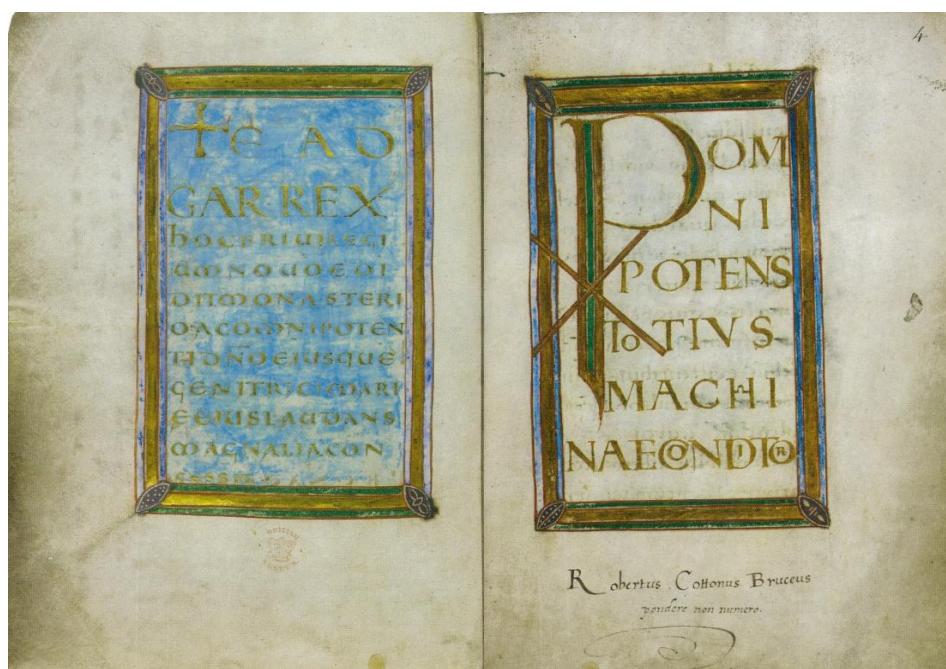 ✝E AD
GAR REX
hOC PRIUILEGI
UM NOUO EDI
DIT MONASTERI
O AC OMNIPOTEN
TI DÑO EIUSQUE
GENITRICI MARI
E EIUS LAUDANS
MAGNALIA CON
CESSIT
4
☧ OM
NI
POTENS
TOTIVS
MACHI
NAE CONDITOR
Robertus Cottonus Bruceus
pondere non numero.